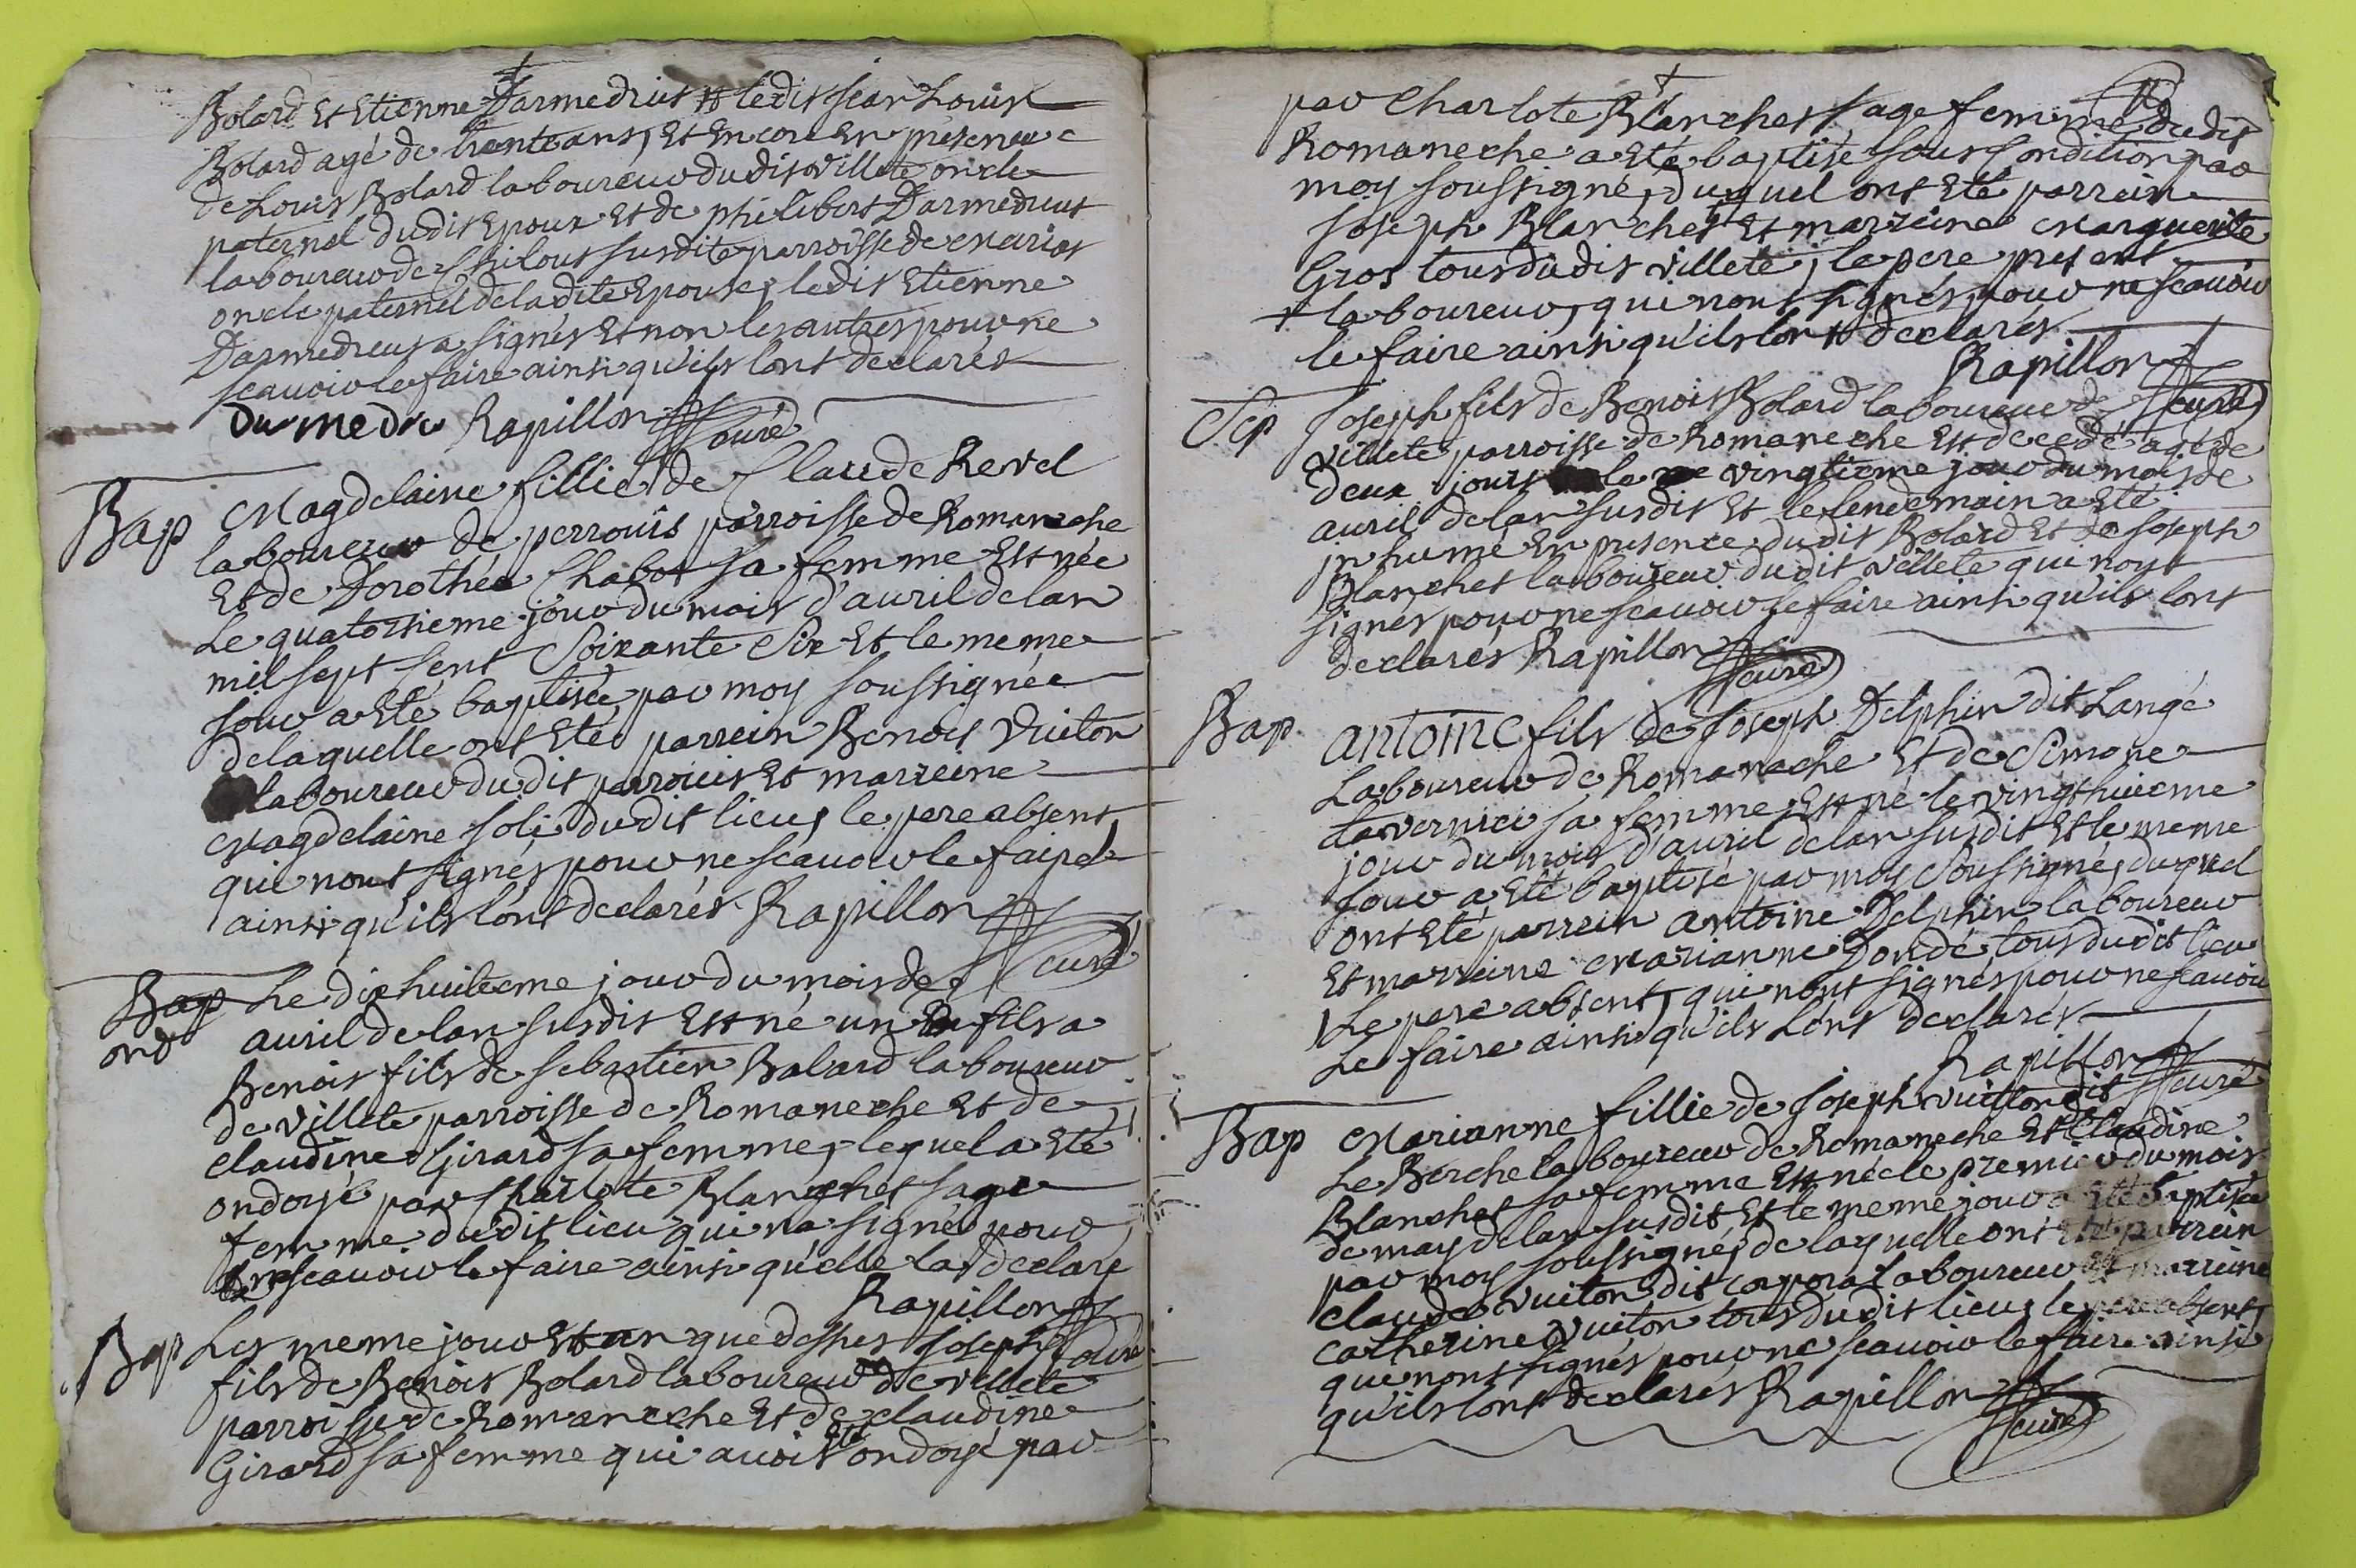 Bolard Et Etienne Darmedrius et ledit Jean Louis
Bolard agé de trente ans, Et Encore En presence
de Louis Bolard laboureur dudit villete oncle
paternel dudit Epoux Et de philibert Darmedrius
laboureur de susdite parroisse de
oncle paternel de la dite Epouse, ledit Etienne
Darmedreus a signés Et non les autres pour ne
scauoir le faire ainsi qu'ils lont declarés
Rapillon curé
Bap Magdelaine fillie de Claude Revel
laboureur de perrouis parroisse de Romaneche
Et de Dorothée Chabot sa femme Est née
Le quatorsieme jour du mois d'auril de lan
mil sept sent soixante six Et le meme
jour a Eté baptisée par moy soussignée
de laquelle ont Eté parrein Benois Vuiton
laboureur dudit perrouis Et marreine
Magdelaine joli dudit lieu, le pere absent,
qui nont signés pour ne scauoir le faire
ainsi qu'ils lont declarés. Rapillon
curé
Bap Le dix huitieme jour du mois de
ond auril de lan susdit Est né un fils a
Benois fils de sebastien Balard laboureur
de villete parroisse de Romaneche Et de
claudine Girard sa femme, lequel a Eté
ondoyé par Charlote Blanchet sage
femme dudit lieu qui na signée pour
ne scauoir le faire ainsi qu'elle la declaré
Rapillon
curé
Bap Les meme jour Et an que dessus Joseph
fils de Benois Bolard laboureur de villete
parroisse de Romaneche Et de claudine
Girard sa femme qui auoit été ondoyé par
par Charlote Blanchet sage femme dudit
Romaneche a Eté baptisé sous condition par
moy soussigné, duquel ont Eté parrein
Joseph Blanchet Et marreine Marguerite
Gros tous dudit villete, le pere present
+ laboureur, qui nont signés, pour ne scauoir
le faire ainsi qu'ils lont declarés.
Rapillon
curé
Sep Joseph fils de Benois Bolard laboureur de
villete parroisse de Romaneche Est decedé agé de
deux jours le vingtieme jour du mois de
auril de lan susdit Et le lendemain a Eté
inhumé En presence dudit Bolard Et de Joseph
Blanchet laboureur dudit villete qui nont
signés pour ne scauoir le faire ainsi qu'ils lont
declarés Rapillon
curé
Bap antoine fils de Joseph Delphin dit Langé
Laboureur de Romaneche Et de Simone
Tavernier sa femme, Est né le vingt huiteme
jour du mois d'auril de lan susdit Et le meme
jour a Eté baptisé par moy soussigné, duquel
ont Eté parrein antoine Delphin laboureur
Et marreine Marianne Dondé, tous dudit lieu
Le pere absent, qui nont signés pour ne scauoir
Le faire ainsi qu'ils lont declarés
Rapillon
curé
Bap Marianne fillie de Joseph Vuiton dit
Le Berche laboureur de Romaneche Et de claudine
Blanchet sa femme Est née le premier du mois
de may de lan susdit Et le meme jour a Eté baptisée
par moy soussigné, de laquelle ont Eté parrein
claude Vuiton dit corporal laboureur Et marreine
catherine Vuiton tous dudit lieu, le pere absent,
qui nont signés pour ne scauoir le faire ainsi
qu'ils lont declarés Rapillon
curé